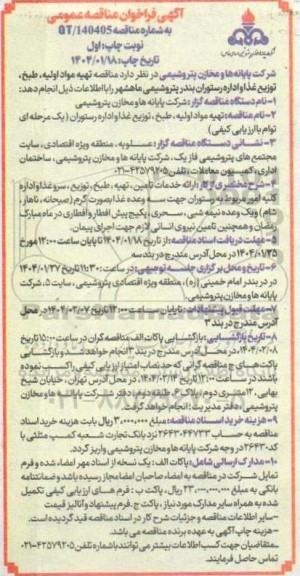 آگهی فراخوان مناقصه عمومی
به شماره مناقصه QT/140405
نوبت چاپ: اول
تاریخ چاپ: ۱۴۰۴/۰۱/۱۸
شرکت پایانه ها و مخازن پتروشیمی در نظر دارد مناقصه تهیه مواد اولیه، طبخ،
توزیع غذا و اداره رستوران بندر پتروشیمی ماهشهر را با اطلاعات ذیل انجام دهد:
۱- نام دستگاه مناقصه گزار: شرکت پایانه ها و مخازن پتروشیمی
۲- نام مناقصه: تهیه مواد اولیه، طبخ، توزیع غذا و اداره رستوران (یک مرحله ای
توام با ارزیابی کیفی)
۳- نشانی دستگاه مناقصه گزار: عسلویه، منطقه ویژه اقتصادی، سایت
مجتمع های پتروشیمی فاز یک، شرکت پایانه ها و مخازن پتروشیمی، ساختمان
اداری، کمیسیون معاملات، تلفن ۴۲۵۷۹۲۰۵-۰۲۱
۴- شرح مختصری از کار: ارائه خدمات تامین، تهیه، طبخ، توزیع، سرو غذا و اداره
کلیه امور مربوط به رستوران جهت سه وعده غذا بصورت گرم (صبحانه، ناهار،
شام) و یک وعده نیمه شبی، سحری، پکیج پیش افطار و افطاری در ماه مبارک
رمضان و همچنین تامین نیروی انسانی لازم جهت اجرای پیمان.
۵- مهلت دریافت اسناد مناقصه: از تاریخ ۱۴۰۴/۰۱/۱۸ تا پایان ساعت ۱۲:۰۰ مورخ
۱۴۰۴/۰۱/۲۵ در محل آدرس مندرج در بند سه
۶- تاریخ و محل برگزاری جلسه توجیهی: در ساعت ۱۱:۳۰ تاریخ ۱۴۰۴/۰۱/۲۷
در بندر امام خمینی (ره)، منطقه ویژه اقتصادی پتروشیمی، سایت ۵، شرکت
پایانه ها و مخازن پتروشیمی.
۷- مهلت قبول پیشنهادات: تا پایان ساعت ۱۴:۰۰ تاریخ ۱۴۰۴/۰۲/۰۷ در محل
آدرس مندرج در بند ۳
۸- تاریخ بازگشایی: بازگشایی پاکات الف مناقصه گران در ساعت ۱۵:۰۰ تاریخ
۱۴۰۴/۰۲/۰۸، در محل آدرس مندرج در بند ۳ انجام خواهد شد و بازگشایی
پاکت های ج مناقصه گرانی که حد نصاب امتیاز ارزیابی کیفی را کسب نموده
باشند در ساعت ۱۴:۰۰ تاریخ ۱۴۰۴/۰۲/۱۴ در محل آدرس تهران، خیابان شیخ
بهایی، ۱۲ متری دوم، پلاک ۲، طبقه دوم، دفتر مرکزی شرکت پایانه ها و مخازن
پتروشیمی، دفتر مدیریت، انجام خواهد گرفت.
۹- هزینه خرید اسناد مناقصه: مبلغ ۳,۰۰۰,۰۰۰ ریال بابت هزینه خرید اسناد
مناقصه به حساب ۲۶۴۳۰۴۴۷۳۳ نزد بانک تجارت شعبه کمپ مثلثی با
کد ۲۶۴۳۰ در وجه شرکت پایانه ها و مخازن پتروشیمی واریز گردد.
۱۰- مدارک ارسالی شامل: پاکات الف: یک نسخه از اسناد مهر امضاء شده و فرم
تمایل شرکت در مناقصه به امضاء صاحبان امضا مجاز رسیده باشد و ضمانتنامه
بانکی به مبلغ ۲۳,۰۰۰,۰۰۰,۰۰۰ ریال، پاکت ب: فرم های ارزیابی کیفی تکمیل
شده به همراه سایر مدارک مورد نیاز، پاکت ج: فرم پیشنهاد و آنالیز قیمت
-سایر اطلاعات مناقصه و جزئیات شرح کار در اسناد مناقصه قید گردیده است.
- هزینه چاپ آگهی به عهده برنده مناقصه می باشد.
- متقاضیان جهت کسب اطلاعات بیشتر می توانند با شماره تلفن ۴۲۵۷۹۲۰۵-۰۲۱
تماس حاصل فرمایند.